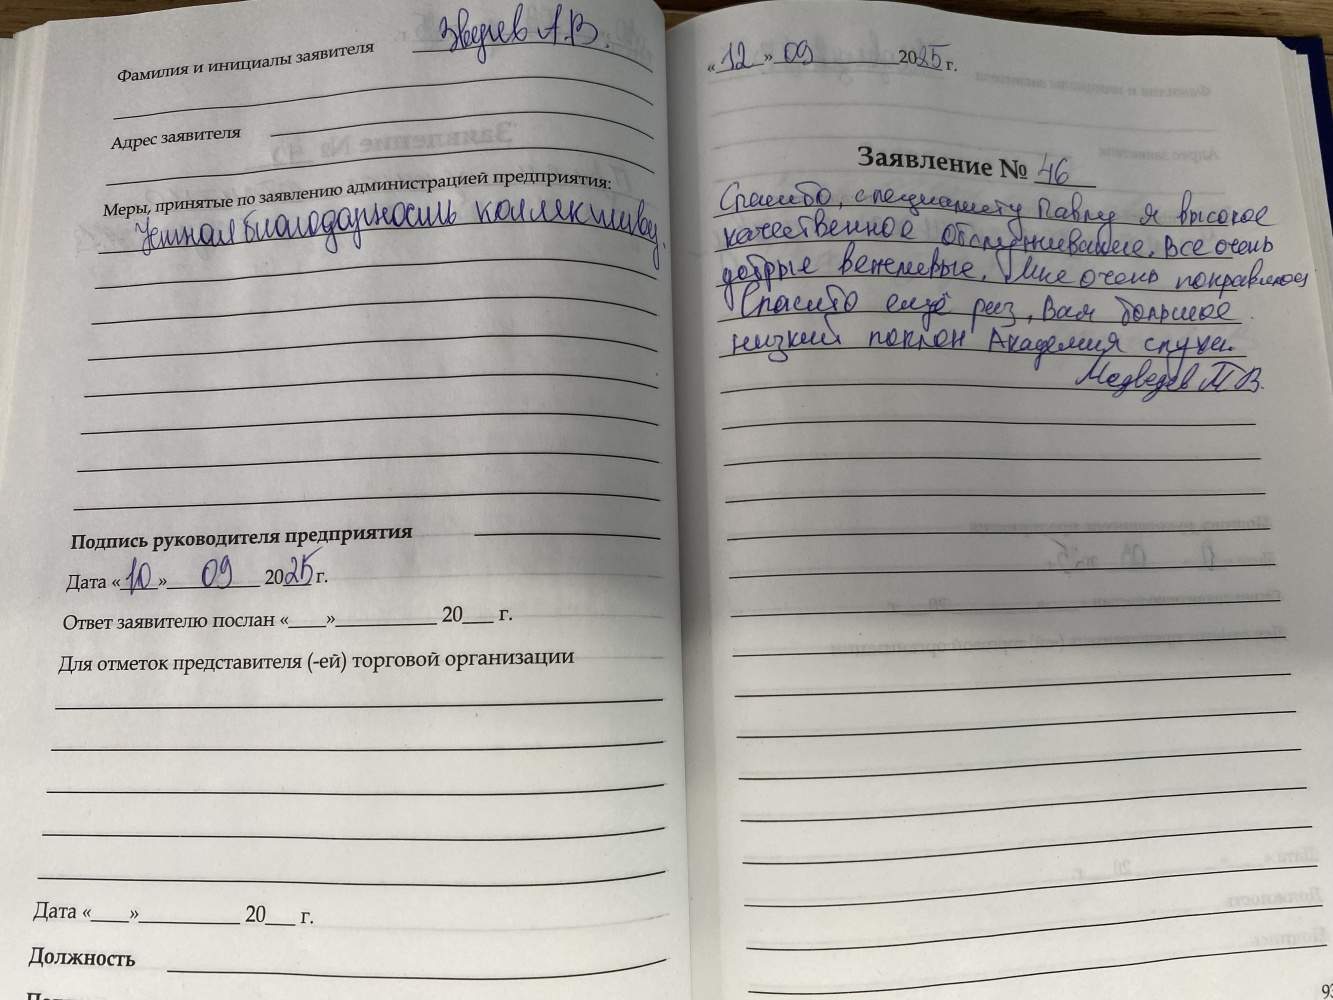 Фамилия и инициалы заявителя Зверев А.В.
Адрес заявителя
Меры, принятые по заявлению администрацией предприятия:
Устная благодарность коллективу.
Подпись руководителя предприятия
Дата «10» 09 2025 г.
Ответ заявителю послан «____»__________ 20___ г.
Для отметок представителя (-ей) торговой организации
Дата «____»__________ 20___ г.
Должность
«12» 09 2025 г.
Заявление № 46
Спасибо, специалисту Павлу я высокое
качественное обслуживание. Все очень
добрые вежливые. Мне очень понравилось
Спасибо ещё раз, Вам большое
низкий поклон Академия слуха.
Медведев П В.
93